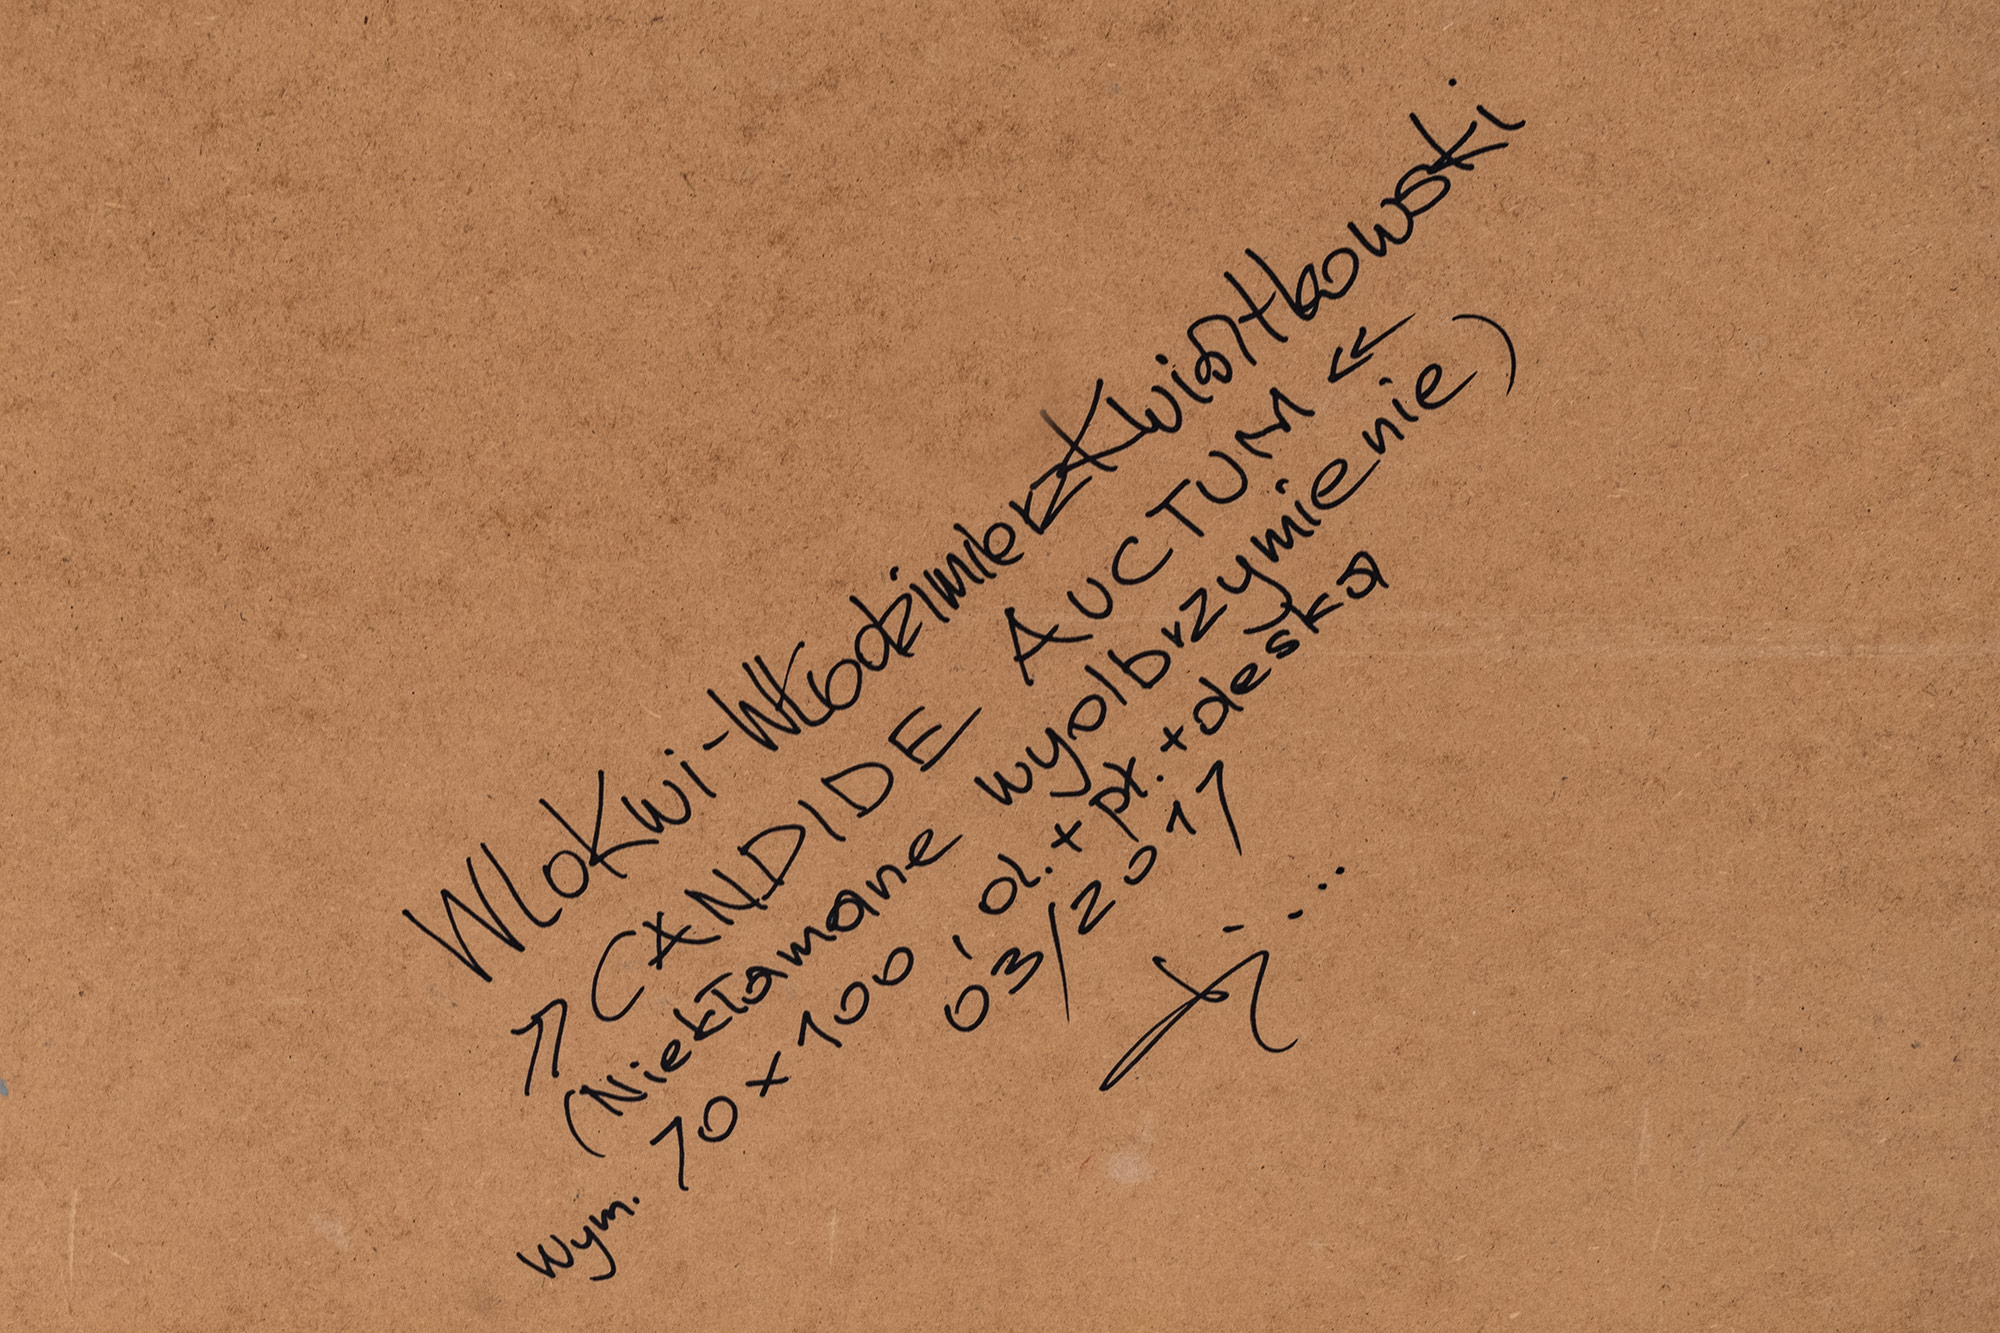 Wlokwi-Włodzimierz Kwiatkowski
↗ CANDIDE AUCTUM ↙
(Niekłamane wyolbrzymienie)
Wym. 70 x 100, ol. + pł. + deska
03/2017